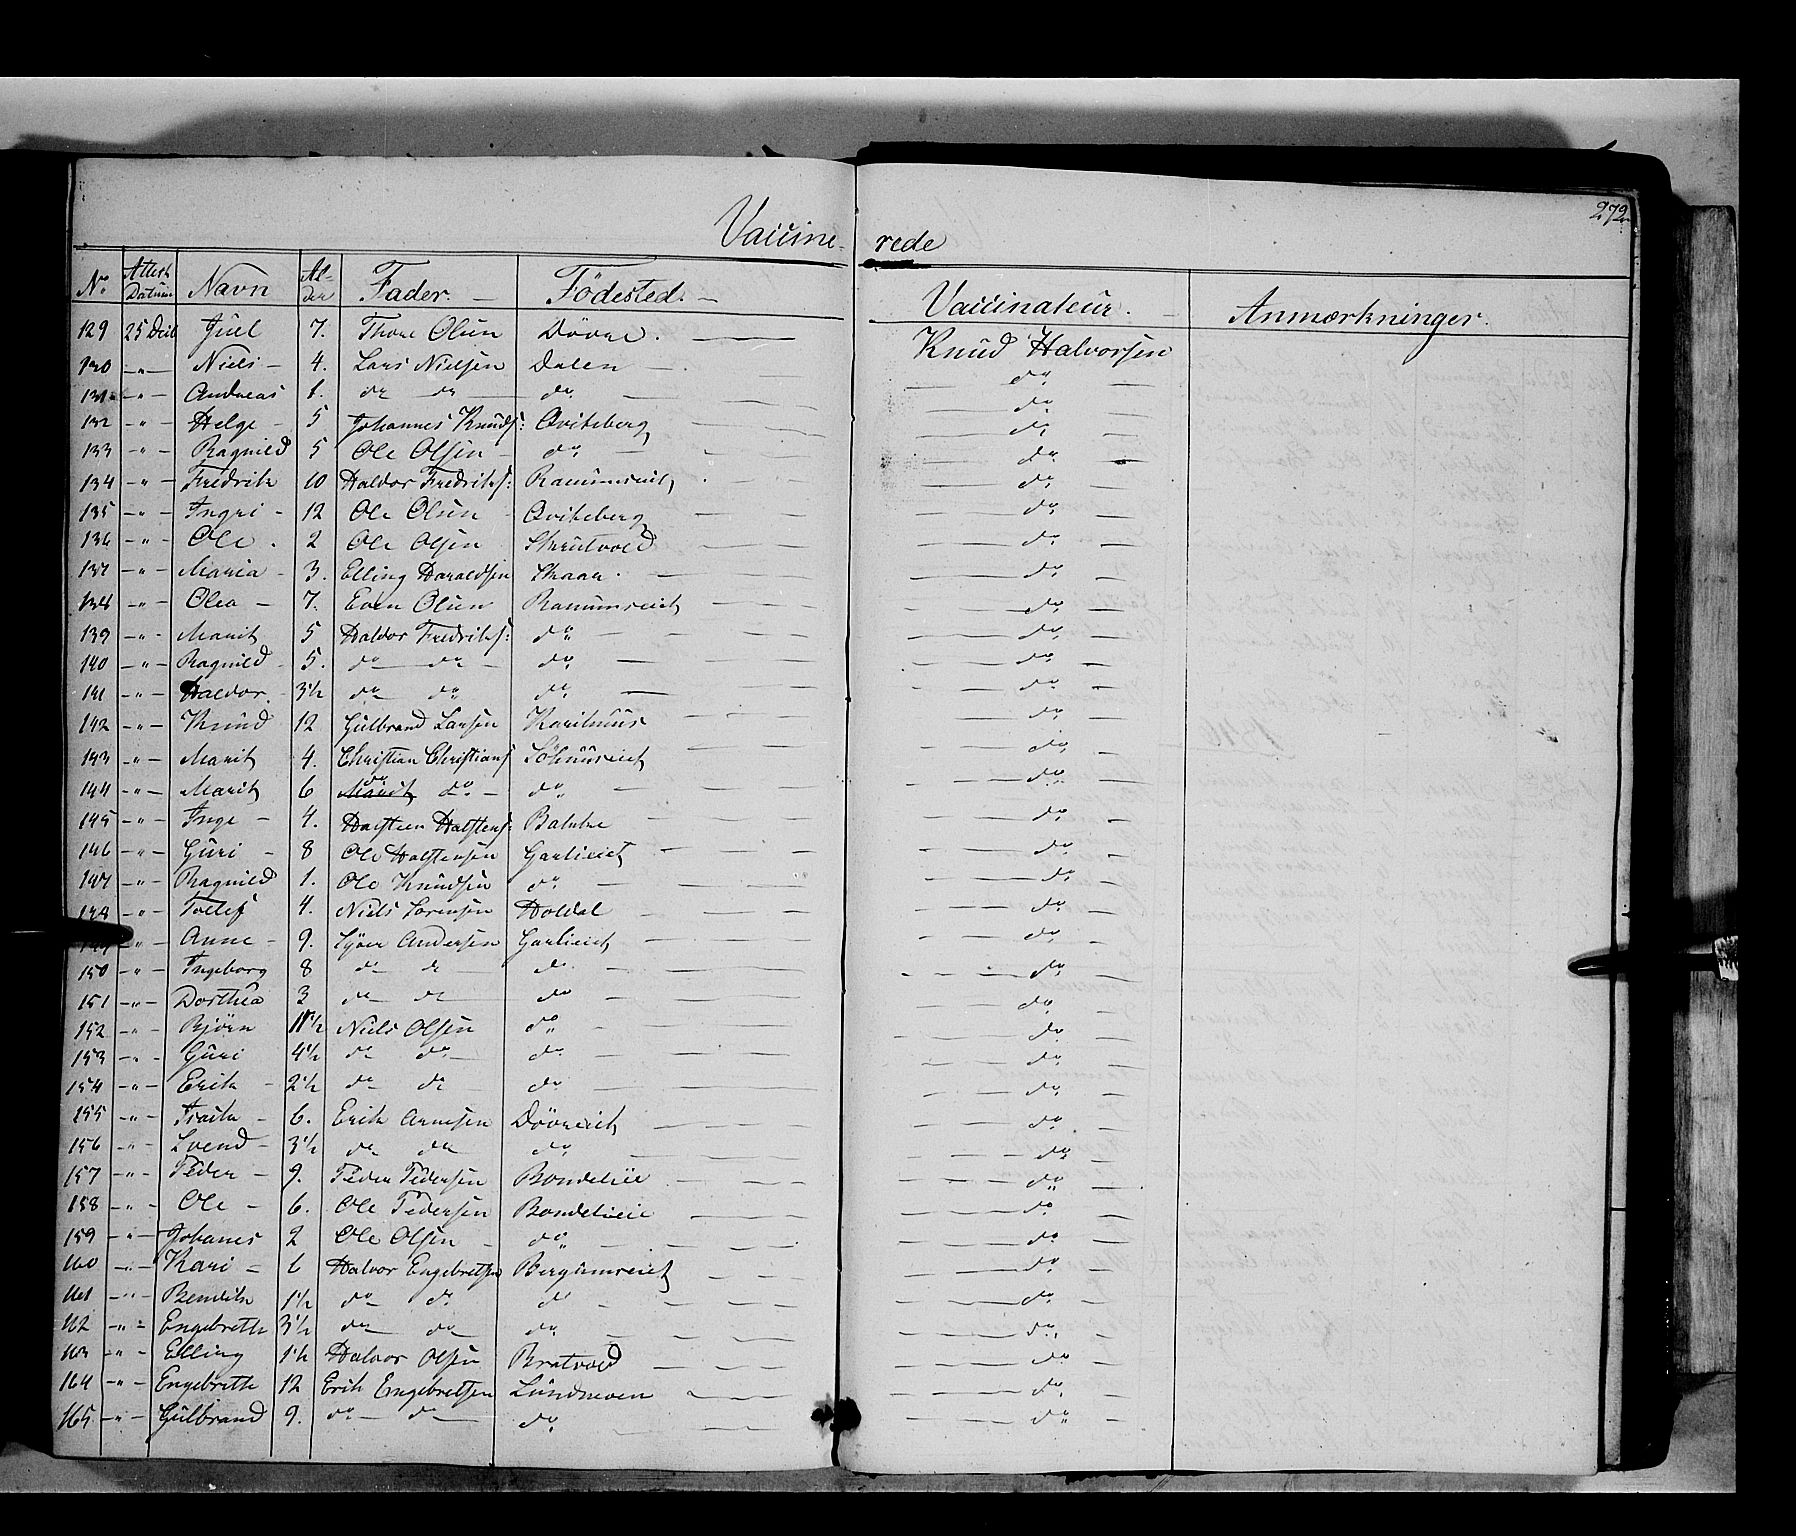 272
Vaccine- rede
No Attest Datum Navn Alder Fader. Födested. Vaccinateur. Anmærkninger.
129 25 Decb Juel 7. Thore Olsen Dövre. Knud Halvorsen
130 -"- Niels 4. Lars Nielsen Dalen do
131 -"- Andreas 1. do do do do
132 -"- Helge 5 Johannes Knuds: Qviteberg do
133 -"- Ragnild 5 Ole Olsen do do
134 -"- Fredrik 10 Haldor Fredriks: Ramumseiet do
135 -"- Ingri 12 Ole Olsen Qviteberg do
136 -"- Ole 2 Ole Olsen Skrutvold do
137 -"- Maria 3. Elling Haraldsen Skaar. do
138 -"- Olea 7. Even Olsen Ramumseiet do
139 -"- Marit 5 Haldor Fredriks: do do
140 -"- Ragnild 5. do do do do
141 -"- Haldor 3½ do do do do
142 -"- Knud 12 Gulbrand Larsen Karihuus do
143 -"- Marit 4. Christian Christians do
144 -"- Marit 6 do do do do
145 -"- Inge 4. Halsteen Halstens: Bakke do
146 -"- Guri 8 Ole Halstensen Garlieiet do
147 -"- Ragnild 1. Ole Knudsen do do
148 -"- Tollef 4. Niels Sorensen Holdal do
149 -"- Anne 9. Syver Andersen Garlieiet do
150 -"- Ingeborg 8 do do do do
151 -"- Dorthea 3 do do do do
152 -"- Björn 11½ Niels Olsen do do
153 -"- Guri 4½ do do do do
154 -"- Erik 2½ do do do do
155 -"- Isack 6. Erik Arnesen Dövreiet do
156 -"- Svend 3½ do do do do
157 -"- Peder 9. Peder Pedersen Bondelieie do
158 -"- Ole 6. Ole Pedersen Bondelieie do
159 -"- Johanes 2 Ole Olsen do do
160 -"- Kari 6 Halvor Engebretsen Bergumseiet do
161 -"- Bendik 1½ do do do do
162 -"- Engebreth 3½ do do do do
163 -"- Elling 1½ Halvor Olsen Bratvold do
164 -"- Engebreth 12 Erik Engebretsen Lundmoen do
165 -"- Gulbrand 9. do do do do